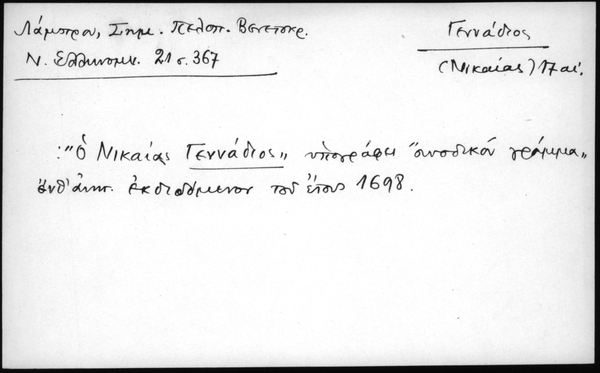 Λάμπρου, Σημ. Πελοπ. Βενετοκρ.
Ν. Ελληνομν. 21 σ. 367
Γεννάδιος
(Νικαίας) 17 αἰ.
:"Ὁ Νικαίας Γεννάδιος„ ὑπογράφει "συνοδικὸν γράμμα„
ἐκδιδόμενον τοῦ ἔτους 1698.